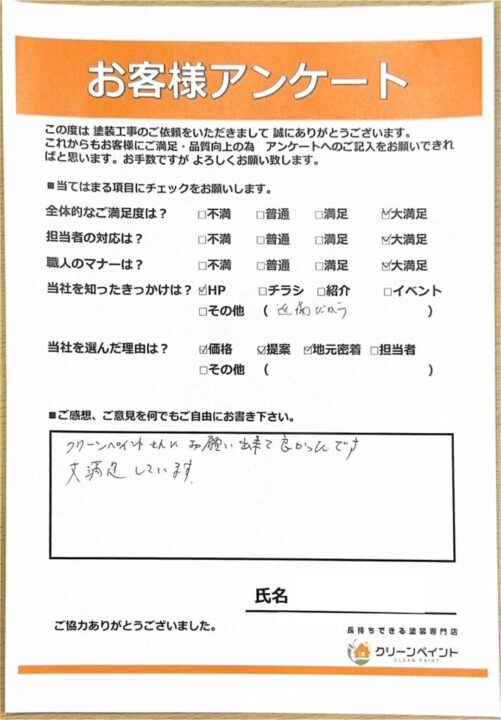 お客様アンケート
この度は 塗装工事のご依頼をいただきまして 誠にありがとうございます。
これからもお客様にご満足・品質向上の為　アンケートへのご記入をお願いできれ
ばと思います。お手数ですが よろしくお願い致します。
■当てはまる項目にチェックをお願いします。
全体的なご満足度は？ □不満 □普通 □満足 ☑大満足
担当者の対応は？ □不満 □普通 □満足 ☑大満足
職人のマナーは？ □不満 □普通 □満足 ☑大満足
当社を知ったきっかけは？ ☑HP □チラシ □紹介 □イベント
□その他 （ 近場だから ）
当社を選んだ理由は？ ☑価格 ☑提案 ☑地元密着 □担当者
□その他 （ ）
■ご感想、ご意見を何でもご自由にお書き下さい。
クリーンペイントさんに お願い出来て良かったです
大満足しています
氏名
ご協力ありがとうございました。
長持ちできる塗装専門店
クリーンペイント
CLEAN PAINT